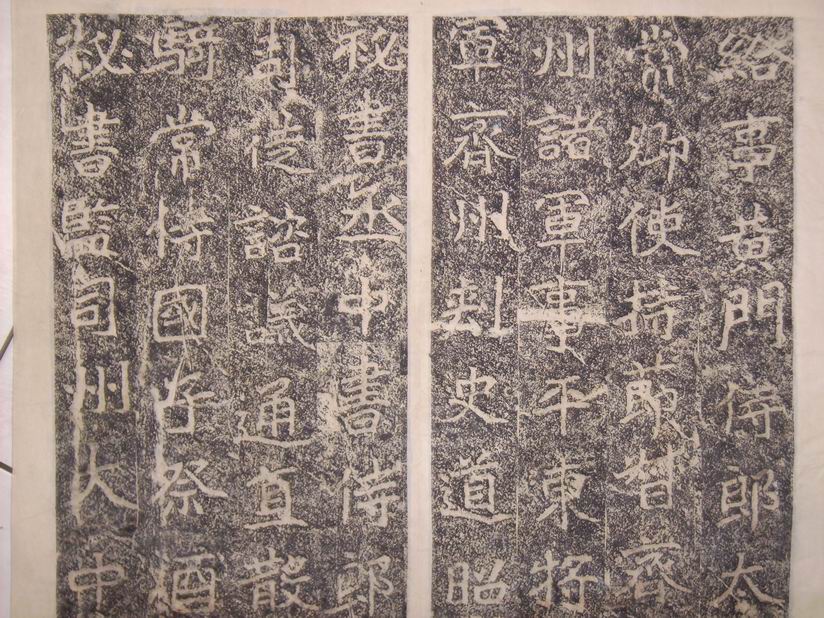 給事黃門侍郎太
常卿使持節督齊
州諸軍事平東將
軍齊州刺史道昭
祕書丞中書侍郎
司徒諮議通直散
騎常侍國子祭酒
祕書監司州大中